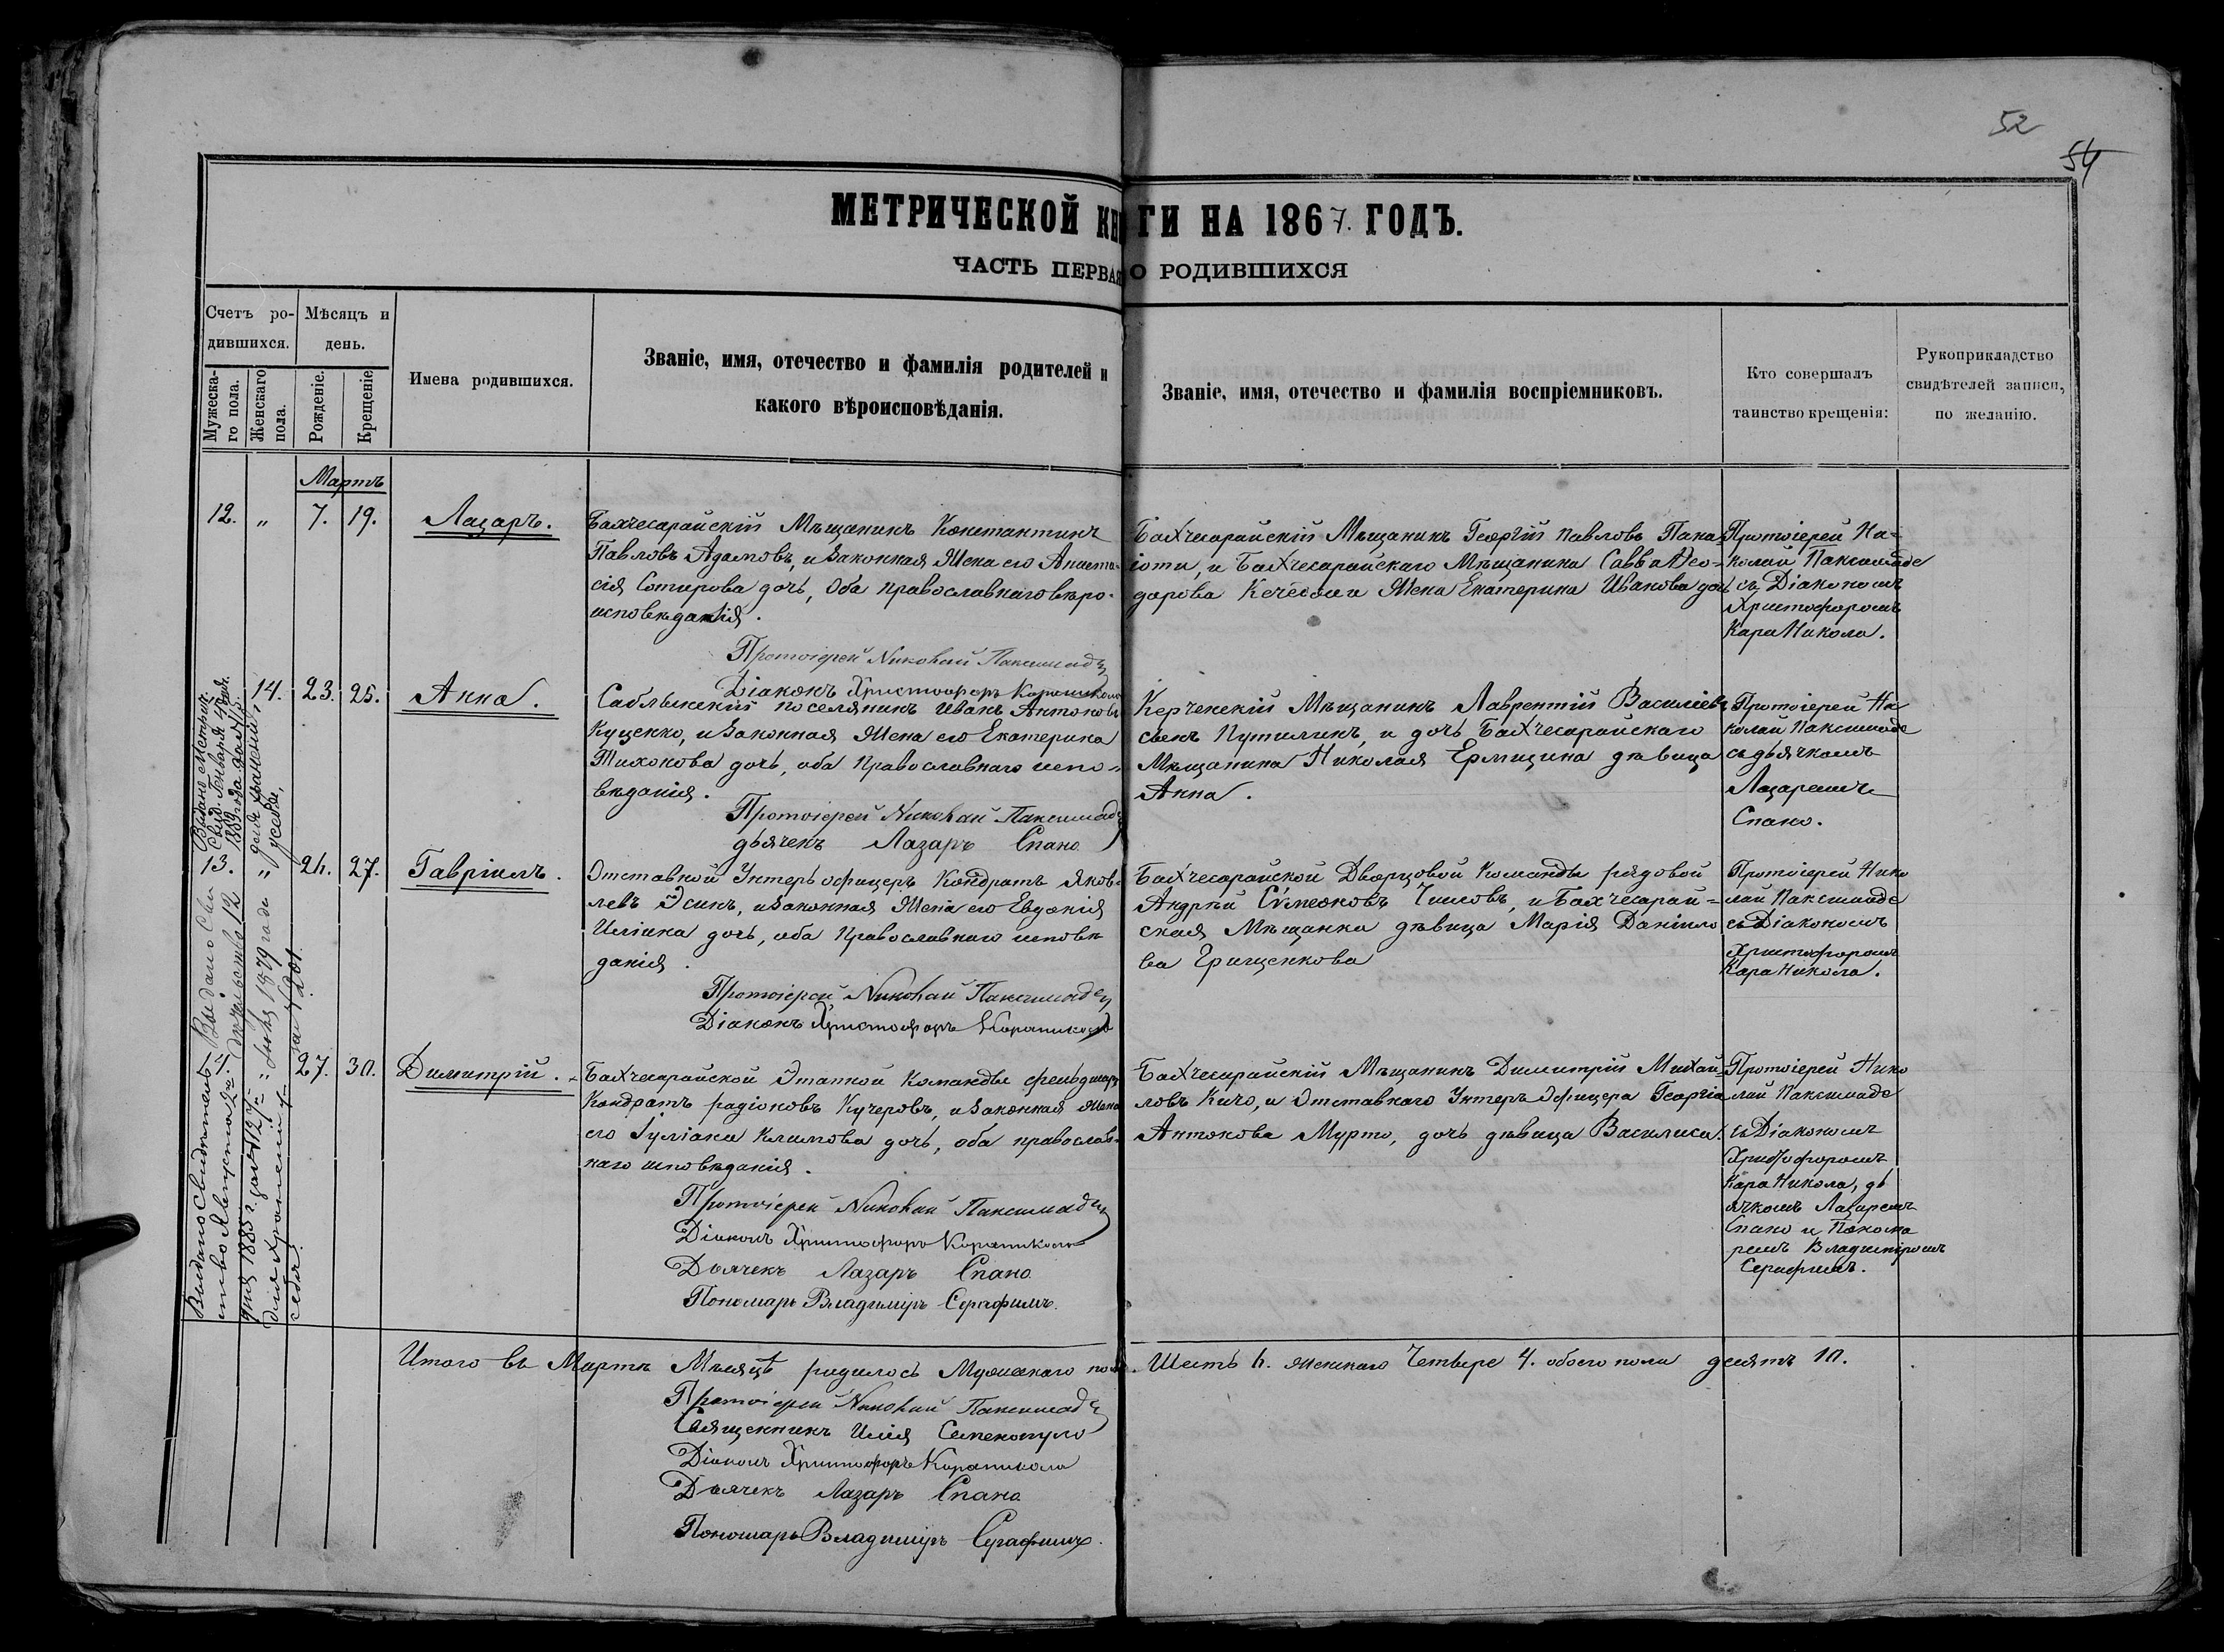 52
54
МЕТРИЧЕСКОЙ КНИГИ НА 1867. ГОДЪ.
ЧАСТЬ ПЕРВАЯ О РОДИВШИХСЯ
Счетъ ро-
дившихся.
Мѣсяцъ и
день.
Мужеска-
го пола.
Женскаго
пола.
Рожденіе.
Крещеніе
Имена родившихся.
Званіе, имя, отечество и фамилія родителей и
какого вѣроисповѣданія.
Званіе, имя, отечество и фамилія воспріемниковъ.
Кто совершалъ
таинство крещенія:
Рукоприкладство
свидѣтелей записи,
по желанію.
Мартъ
12. „ 7. 19. Лазаръ.
Бахчесарайскій Мѣщанинъ Константинъ
Павловъ Адамовъ, и Законная Жена его Анаста-
сія Сотирова дочь, Оба православнаго вѣро-
исповѣданія.
Протоіерей Николай Паксимаде
Діаконъ Христофоръ Караникола
Бахчесарайскій Мѣщанинъ Георгій Павловъ Пана-
іоти, и Бахчесарайскаго Мѣщанина Савва Ѳео-
дорова Жена Екатерина Иванова дочь
Протоіерей Ни-
колай Паксимаде
съ Діакономъ
Христофоромъ
Кара Никола.
14. 23. 25. Анна.
Саблынскій поселянинъ Иванъ Антоновъ
Куценко, и Законная Жена его Екатерина
Тихонова дочь, оба Православнаго испо-
вѣданія.
Протоіерей Николай Паксимаде
дьячекъ Лазаръ Спано
Керченскій Мѣщанинъ Лаврентій Василіевъ
сынъ Путилинъ, и дочь Бахчесарайскаго
Мѣщанина Николая Ермицина дѣвица
Анна.
Протоіерей Ни
колай Паксимаде
съ дьячкомъ
Лазаремъ
Спано.
13. „ 26. 27. Гавріилъ.
Отставной Унтеръ офицеръ Кондратъ Яков-
левъ Эсинъ, и Законная Жена его Евдокія
Иліина дочь, оба Православнаго исповѣ
данія.
Протоіерей Николай Паксимаде
Діаконъ Христофоръ Караникола
Бахчесарайской Дворцовой Команды рядовой
Андрѣй Сѵмеоновъ Чиловъ, и Бахчесарай-
ская Мѣщанка дѣвица Марія Даніило
ва Грищенкова
Протоіерей Нико
лай Паксимаде
съ Діакономъ
Христофоромъ
Кара Никола.
14. 27. 30. Димитрій.
Бахчесарайской Этапной Команды фельдшеръ
Кондратъ Радіоновъ Кучеровъ, и Законная Жена
его Іуліана Климова дочь, оба православ-
наго исповѣданія.
Протоіерей Николай Паксимаде
Діаконъ Христофоръ Караникола
Дьячекъ Лазаръ Спано
Пономарь Владиміръ Серафимъ.
Бахчесарайскій Мѣщанинъ Димитрій Михай-
ловъ Кичо, и Отставнаго Унтеръ Офицера Георгія
Антонова Мурто, дочь дѣвица Василиса.
Протоіерей Нико
лай Паксимаде
съ Діакономъ
Христофоромъ
Кара Никола, дь
ячкомъ Лазаремъ
Спано и Понома
ремъ Владиміромъ
Серафимъ.
Выдано Метрич.
Свид. Генваря
для храненія
у себя,
Выдано Сви
дѣтельство 12
Іюня 1879 года
за № 201.
Выдано Свидѣтель-
ство Августа
дня 1885 г. за № 127
для храненія у
себя.
Итого въ Мартѣ Мѣсяцѣ родилось Мужескаго пола. Шесть 6. женскаго Четыре 4. обоего пола десять 10.
Протоіерей Николай Паксимаде
Священникъ Илія
Діаконъ Христофоръ Караникола
Дьячекъ Лазаръ Спано
Пономарь Владиміръ Серафимъ.